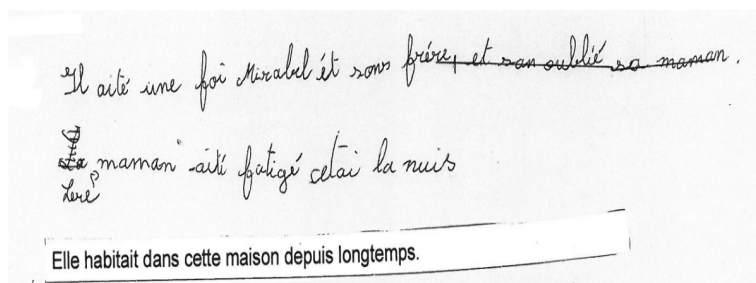 Il aité une foi Mirabel ét sons frére, et san oublié sa maman.
maman aité fatigé cetai la nuis
Leré
Elle habitait dans cette maison depuis longtemps.